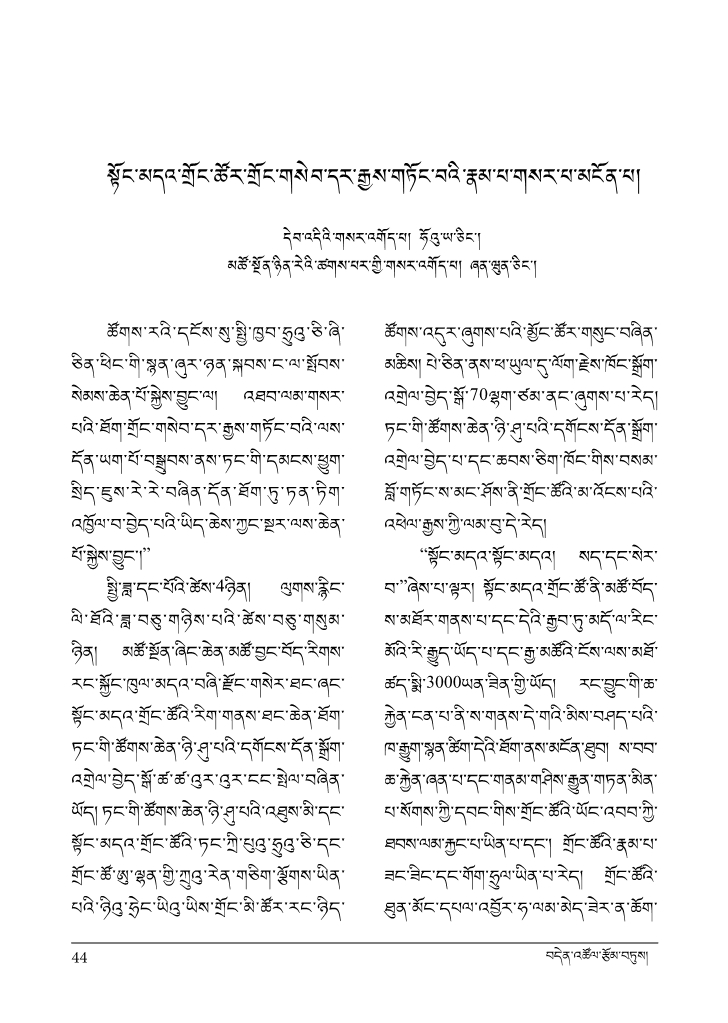 སྟོང་མདའ་གྲོང་ཚོར་གྲོང་གསེབ་དར་རྒྱས་གཏོང་བའི་རྣམ་པ་གསར་པ་མངོན་པ།
དེབ་འདིའི་གསར་འགོད་པ། ཧོའུ་ཡ་ཅིང་།
མཚོ་སྔོན་ཉིན་རེའི་ཚགས་པར་གྱི་གསར་འགོད་པ། ཞན་ཝུན་ཅིང་།
ཚོགས་རའི་དངོས་སུ་སྤྱི་ཁྱབ་ཧྲུའུ་ཅི་ཞི་
ཅིན་ཕིང་གི་སྙན་ཞུར་ཉན་སྐབས་ང་ལ་སྤོབས་
སེམས་ཆེན་པོ་སྐྱེས་བྱུང་ལ། འཐབ་ལམ་གསར་
པའི་ཐོག་གྲོང་གསེབ་དར་རྒྱས་གཏོང་བའི་ལས་
དོན་ཡག་པོ་བསྒྲུབས་ནས་ཏང་གི་དམངས་ཕྱུག་
སྲིད་ཇུས་རེ་རེ་བཞིན་དོན་ཐོག་ཏུ་ཏན་ཏིག་
འཁྱོལ་བ་བྱེད་པའི་ཡིད་ཆེས་ཀྱང་སྔར་ལས་ཆེན་
པོ་སྐྱེས་བྱུང་།”
སྤྱི་ཟླ་དང་པོའི་ཚེས་4ཉིན། ལུགས་རྙིང་
ལི་ཐོའི་ཟླ་བཅུ་གཉིས་པའི་ཚེས་བཅུ་གསུམ་
ཉིན། མཚོ་སྔོན་ཞིང་ཆེན་མཚོ་བྱང་བོད་རིགས་
རང་སྐྱོང་ཁུལ་མདའ་བཞི་རྫོང་གསེར་ཐང་ཞང་
སྟོང་མདའ་གྲོང་ཚོའི་རིག་གནས་ཐང་ཆེན་ཐོག་
ཏང་གི་ཚོགས་ཆེན་ཉི་ཤུ་པའི་དགོངས་དོན་སྒྲོག་
འགྲེལ་བྱེད་སྒོ་ཚ་ཚ་འུར་འུར་ངང་སྤེལ་བཞིན་
ཡོད། ཏང་གི་ཚོགས་ཆེན་ཉི་ཤུ་པའི་འཐུས་མི་དང་
སྟོང་མདའ་གྲོང་ཚོའི་ཏང་ཀྲི་པུའུ་ཧྲུའུ་ཅི་དང་
གྲོང་ཚོ་ཨུ་ལྷན་གྱི་ཀྲུའུ་རེན་གཅིག་ལྕོགས་ཡིན་
པའི་ཉིའུ་ཧྥེང་ཡིའུ་ཡིས་གྲོང་མི་ཚོར་རང་ཉིད་
ཚོགས་འདུར་ཞུགས་པའི་མྱོང་ཚོར་གསུང་བཞིན་
མཆིས། པེ་ཅིན་ནས་ཕ་ཡུལ་དུ་ལོག་རྗེས་ཁོང་སྒྲོག་
འགྲེལ་བྱེད་སྒོ་70ལྷག་ཙམ་ནང་ཞུགས་པ་རེད།
ཏང་གི་ཚོགས་ཆེན་ཉི་ཤུ་པའི་དགོངས་དོན་སྒྲོག་
འགྲེལ་བྱེད་པ་དང་ཆབས་ཅིག་ཁོང་གིས་བསམ་
བློ་གཏོང་ས་མང་ཤོས་ནི་གྲོང་ཚོའི་མ་འོངས་པའི་
འཕེལ་རྒྱས་ཀྱི་ལམ་བུ་དེ་རེད།
“སྟོང་མདའ་སྟོང་མདའ། སད་དང་སེར་
བ་”ཞེས་པ་ལྟར། སྟོང་མདའ་གྲོང་ཚོ་ནི་མཚོ་བོད་
ས་མཐོར་གནས་པ་དང་དེའི་རྒྱབ་ཏུ་མདོ་ལ་རིང་
མོའི་རི་རྒྱུད་ཡོད་པ་དང་རྒྱ་མཚོའི་ངོས་ལས་མཐོ་
ཚད་སྨི་3000ཡན་ཟིན་གྱི་ཡོད། རང་བྱུང་གི་ཆ་
རྐྱེན་ངན་པ་ནི་ས་གནས་དེ་གའི་མིས་བཤད་པའི་
ཁ་རྒྱུག་སྙན་ཚིག་དེའི་ཐོག་ནས་མངོན་ཐུབ། ས་བབ་
ཆ་རྐྱེན་ཞན་པ་དང་གནམ་གཤིས་རྒྱུན་གཏན་མིན་
པ་སོགས་ཀྱི་དབང་གིས་གྲོང་ཚོའི་ཡོང་འབབ་ཀྱི་
ཐབས་ལམ་རྐྱང་པ་ཡིན་པ་དང་། གྲོང་ཚོའི་རྣམ་པ་
ཟང་ཟིང་དང་གོག་ཧྲུལ་ཡིན་པ་རེད། གྲོང་ཚོའི་
ཐུན་མོང་དཔལ་འབྱོར་ཧ་ལམ་མེད་ཟེར་ན་ཆོག་
44
བདེན་འཚོལ་རྩོམ་བཏུས།